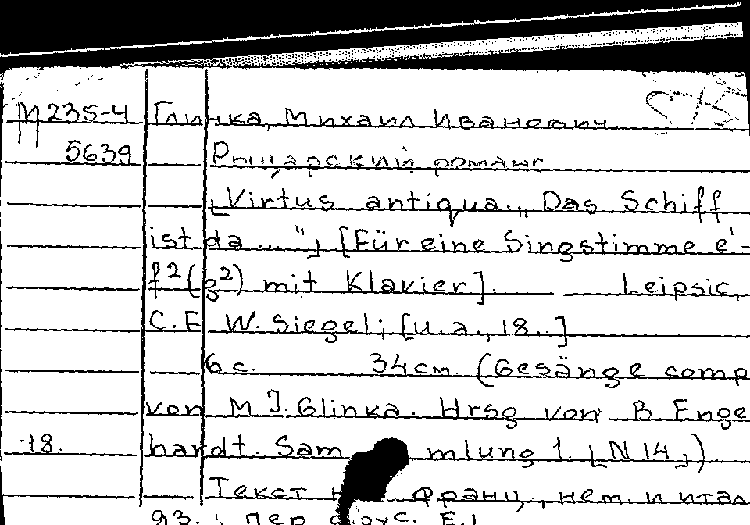 М 235-4 Глинка, Михаил Иванович
5639 Рыцарский романс
„Virtus antiqua.„ Das Schiff
ist da ...“, [Für eine Singstimme e'-
f²(g²) mit Klavier]. Leipsic,
C. F. W. Siegel; [u. a., 18..]
6 с. 34 см. (Gesänge comp
von M. J. Glinka. Hrsg von B. Enge
18. hardt. Sammlung 1. [N 14])
Текст франц., нем. и итал
яз.; пер с рус. E.